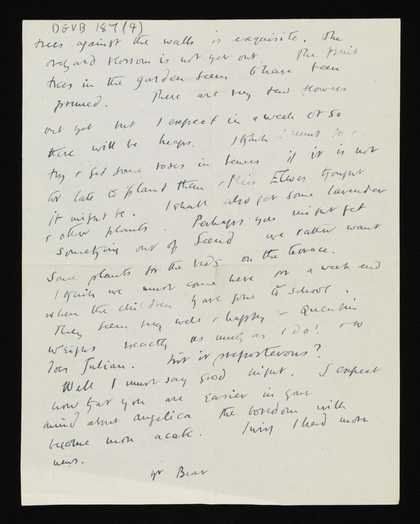 DGVB 187 (4)
trees against the walls is exquisite. The
orchard blossom is not yet out. The fruit
trees in the garden seem to have been
pruned. There are very few flowers
out yet but I expect in a week or so
there will be heaps. I think I must
try & get some roses in Lewes if it is not
too late to plant them & Miss Elwes thought
it might be. I shall also get some lavender
& other plants. Perhaps you might get
something out of Seend we rather want
some plants for the beds on the terrace.
I think we must come here for a week end
when the children have gone to school.
They seem very well & happy - Quentin
weighs exactly as much as I do! & so
does Julian. Isn't it preposterous?
Well I must say good night. I expect
now that you are easier in your
mind about Angelica the boredom will
become more acute. I wish I had more
news.
yr Bear